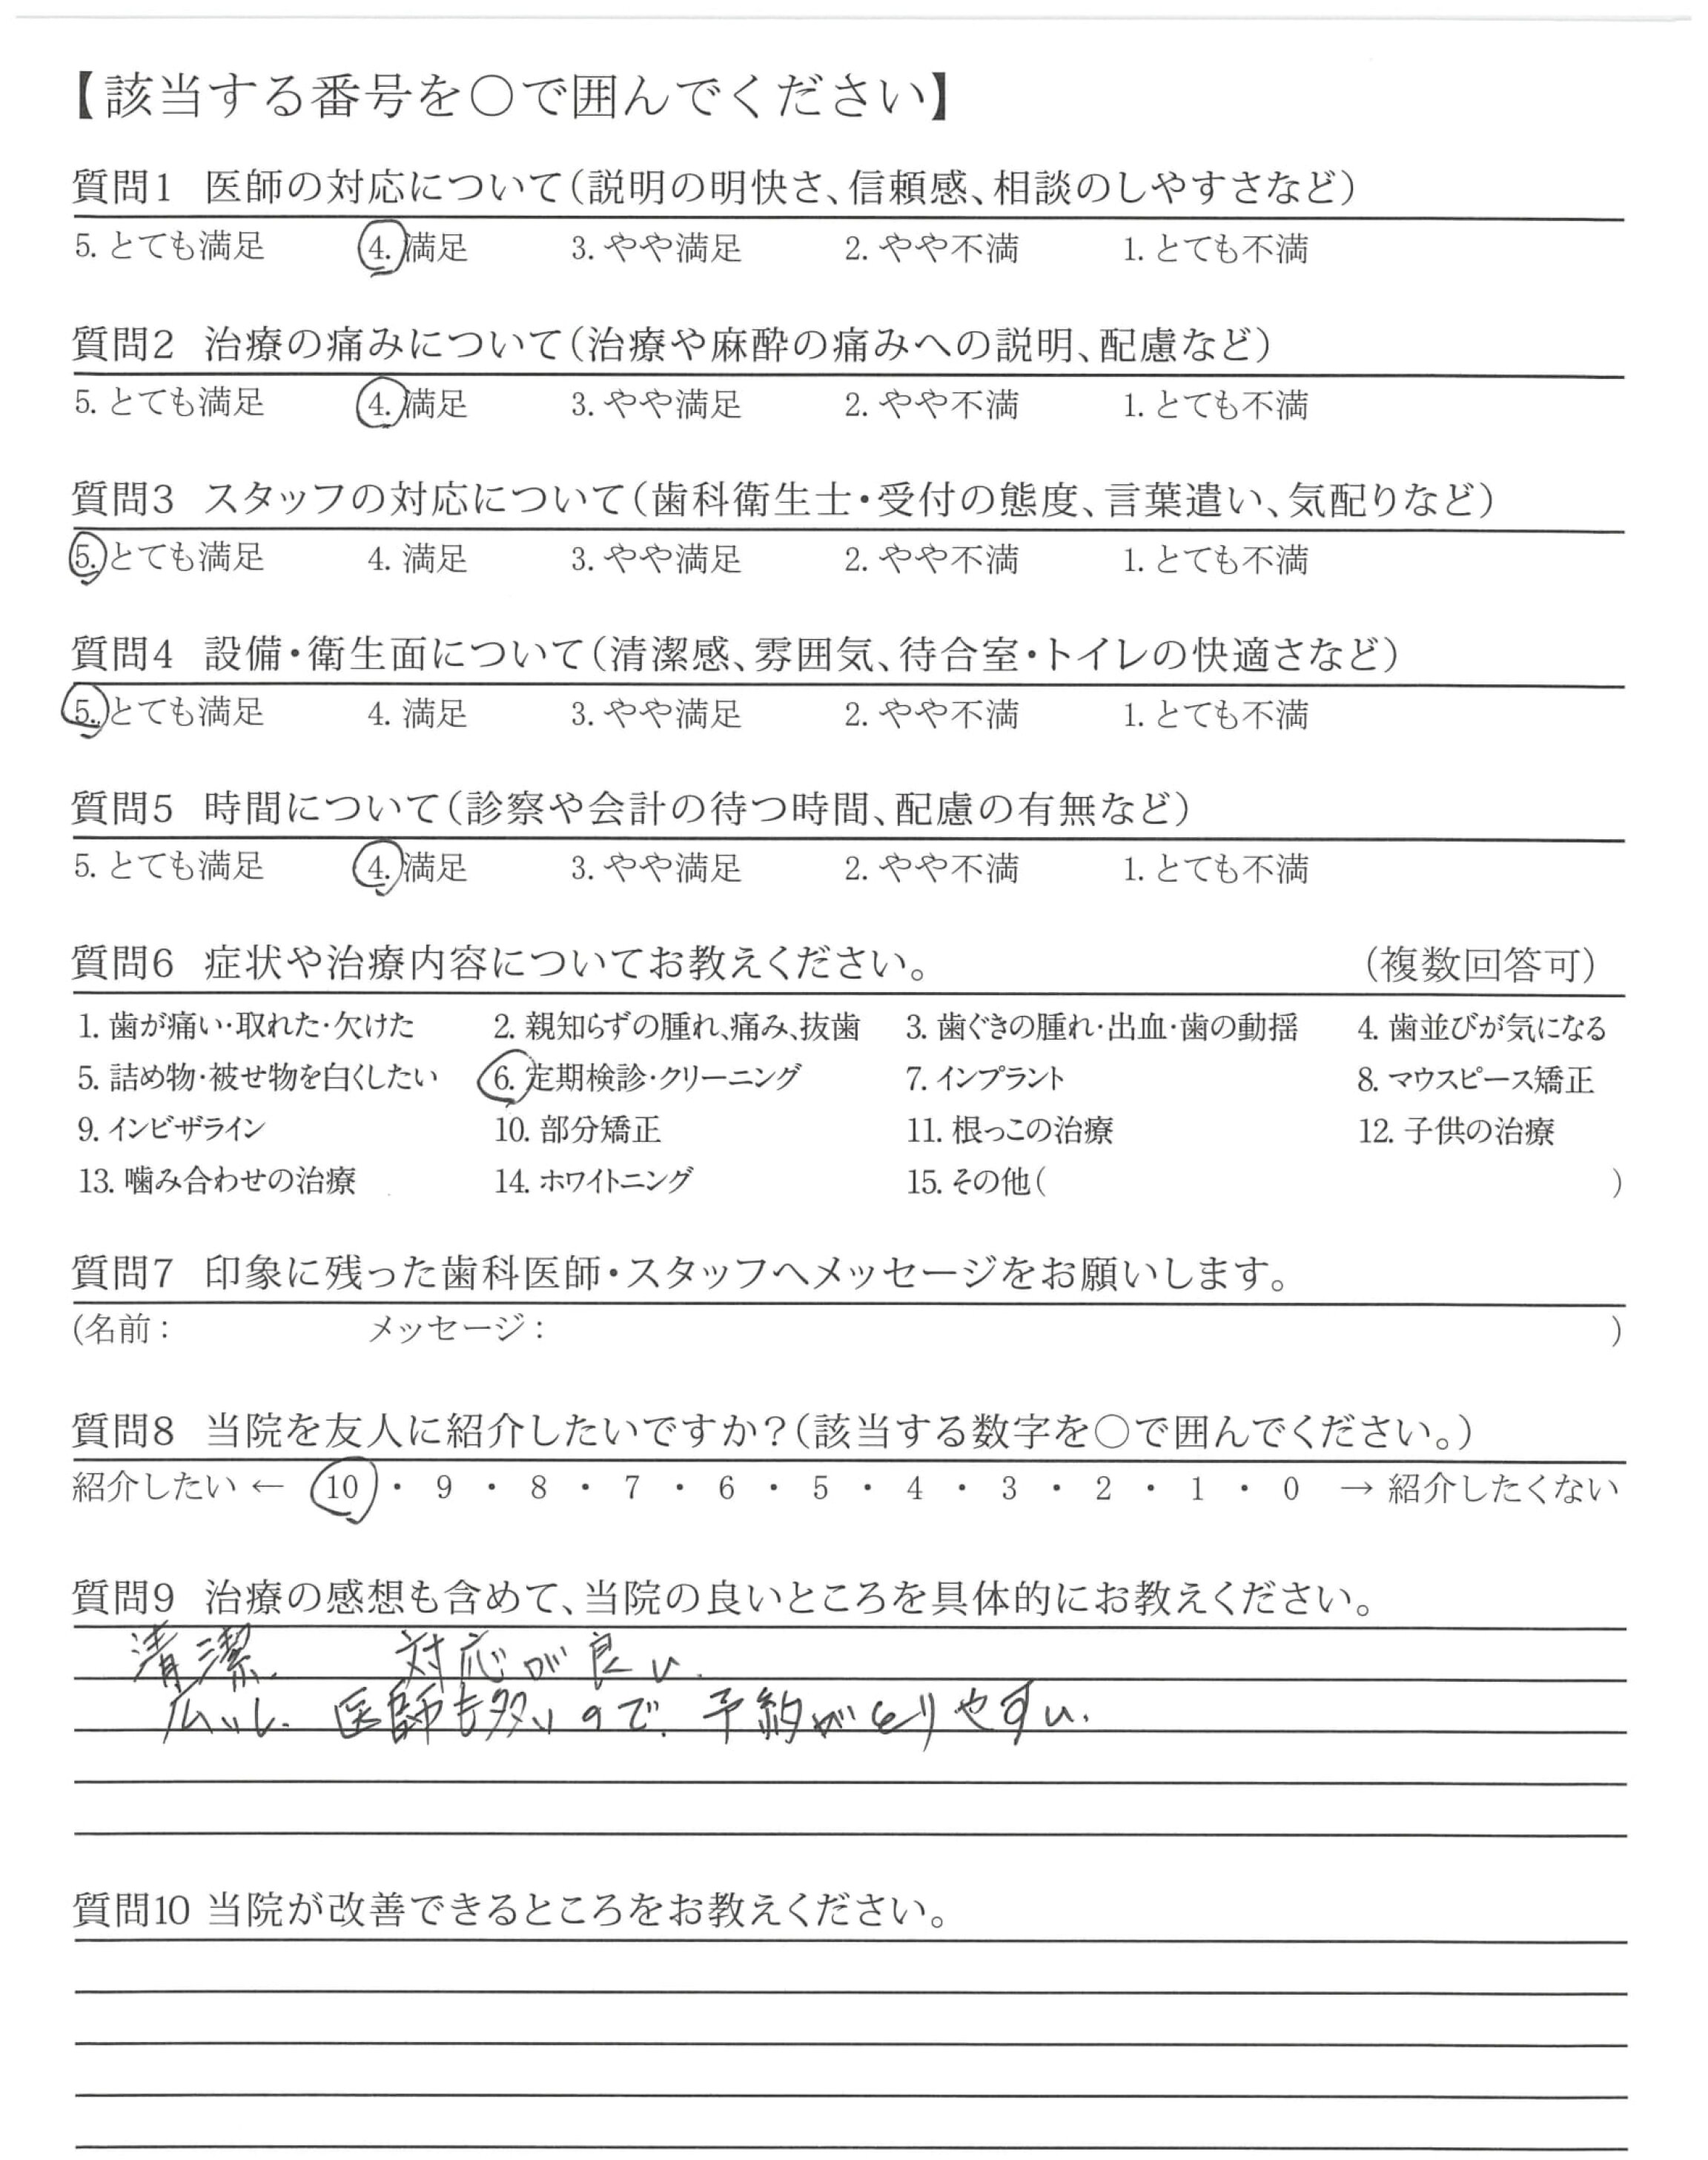 【該当する番号を○で囲んでください】
質問1 医師の対応について(説明の明快さ、信頼感、相談のしやすさなど)
5. とても満足 4. 満足 3. やや満足 2. やや不満 1. とても不満
質問2 治療の痛みについて(治療や麻酔の痛みへの説明、配慮など)
5. とても満足 4. 満足 3. やや満足 2. やや不満 1. とても不満
質問3 スタッフの対応について(歯科衛生士・受付の態度、言葉遣い、気配りなど)
5. とても満足 4. 満足 3. やや満足 2. やや不満 1. とても不満
質問4 設備・衛生面について(清潔感、雰囲気、待合室・トイレの快適さなど)
5. とても満足 4. 満足 3. やや満足 2. やや不満 1. とても不満
質問5 時間について(診察や会計の待つ時間、配慮の有無など)
5. とても満足 4. 満足 3. やや満足 2. やや不満 1. とても不満
質問6 症状や治療内容についてお教えください。 (複数回答可)
1. 歯が痛い・取れた・欠けた 2. 親知らずの腫れ、痛み、抜歯 3. 歯ぐきの腫れ・出血・歯の動揺 4. 歯並びが気になる
5. 詰め物・被せ物を白くしたい 6. 定期検診・クリーニング 7. インプラント 8. マウスピース矯正
9. インビザライン 10. 部分矯正 11. 根っこの治療 12. 子供の治療
13. 噛み合わせの治療 14. ホワイトニング 15. その他( )
質問7 印象に残った歯科医師・スタッフへメッセージをお願いします。
(名前: メッセージ: )
質問8 当院を友人に紹介したいですか?(該当する数字を○で囲んでください。)
紹介したい ← 10 ・ 9 ・ 8 ・ 7 ・ 6 ・ 5 ・ 4 ・ 3 ・ 2 ・ 1 ・ 0 → 紹介したくない
質問9 治療の感想も含めて、当院の良いところを具体的にお教えください。
清潔. 対応が良い.
広いし. 医師も多いので. 予約がとりやすい.
質問10 当院が改善できるところをお教えください。